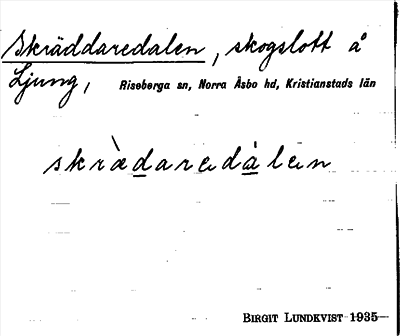 Skräddaredalen, skogslott å
Ljung, Riseberga sn, Norra Åsbo hd, Kristianstads län
skræ̀daredàlen
BIRGIT LUNDKVIST 1935—